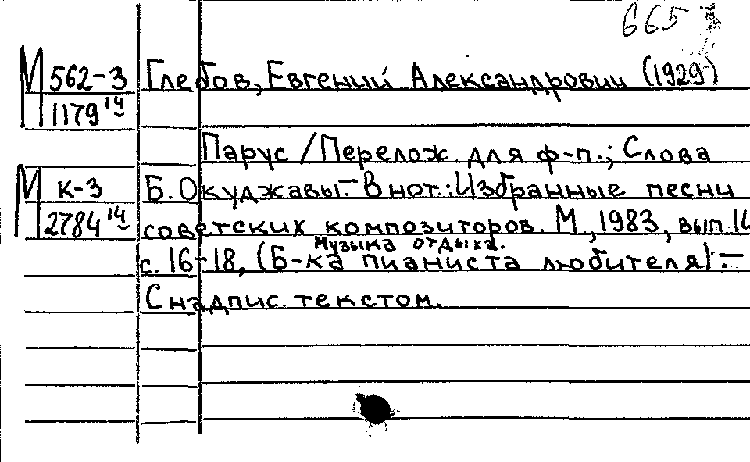 665
М 562-3 Глебов, Евгений Александрович (1929)
1179 14
Парус / Перелож. для ф-п.; Слова
М К-3 Б. Окуджавы.- В нот.: Избранные песни
2784 14 советских композиторов. М., 1983, вып. 14
Музыка отдыха.
с. 16-18, (Б-ка пианиста любителя).-
С надпис. текстом.